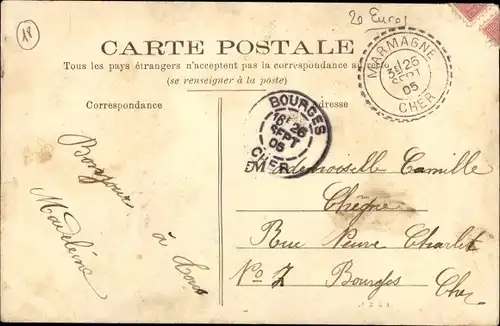 18
20 Euros
CARTE POSTALE
Tous les pays étrangers n'acceptent pas la correspondance au recto
(se renseigner à la poste)
Correspondance
Adresse
MARMAGNE
26
SEPT
05
CHER
BOURGES
26
SEPT
05
CHER
Bonjour
à tous
Madeleine
Mademoiselle Camille
Rue Charlet
No 7 Bourges Cher